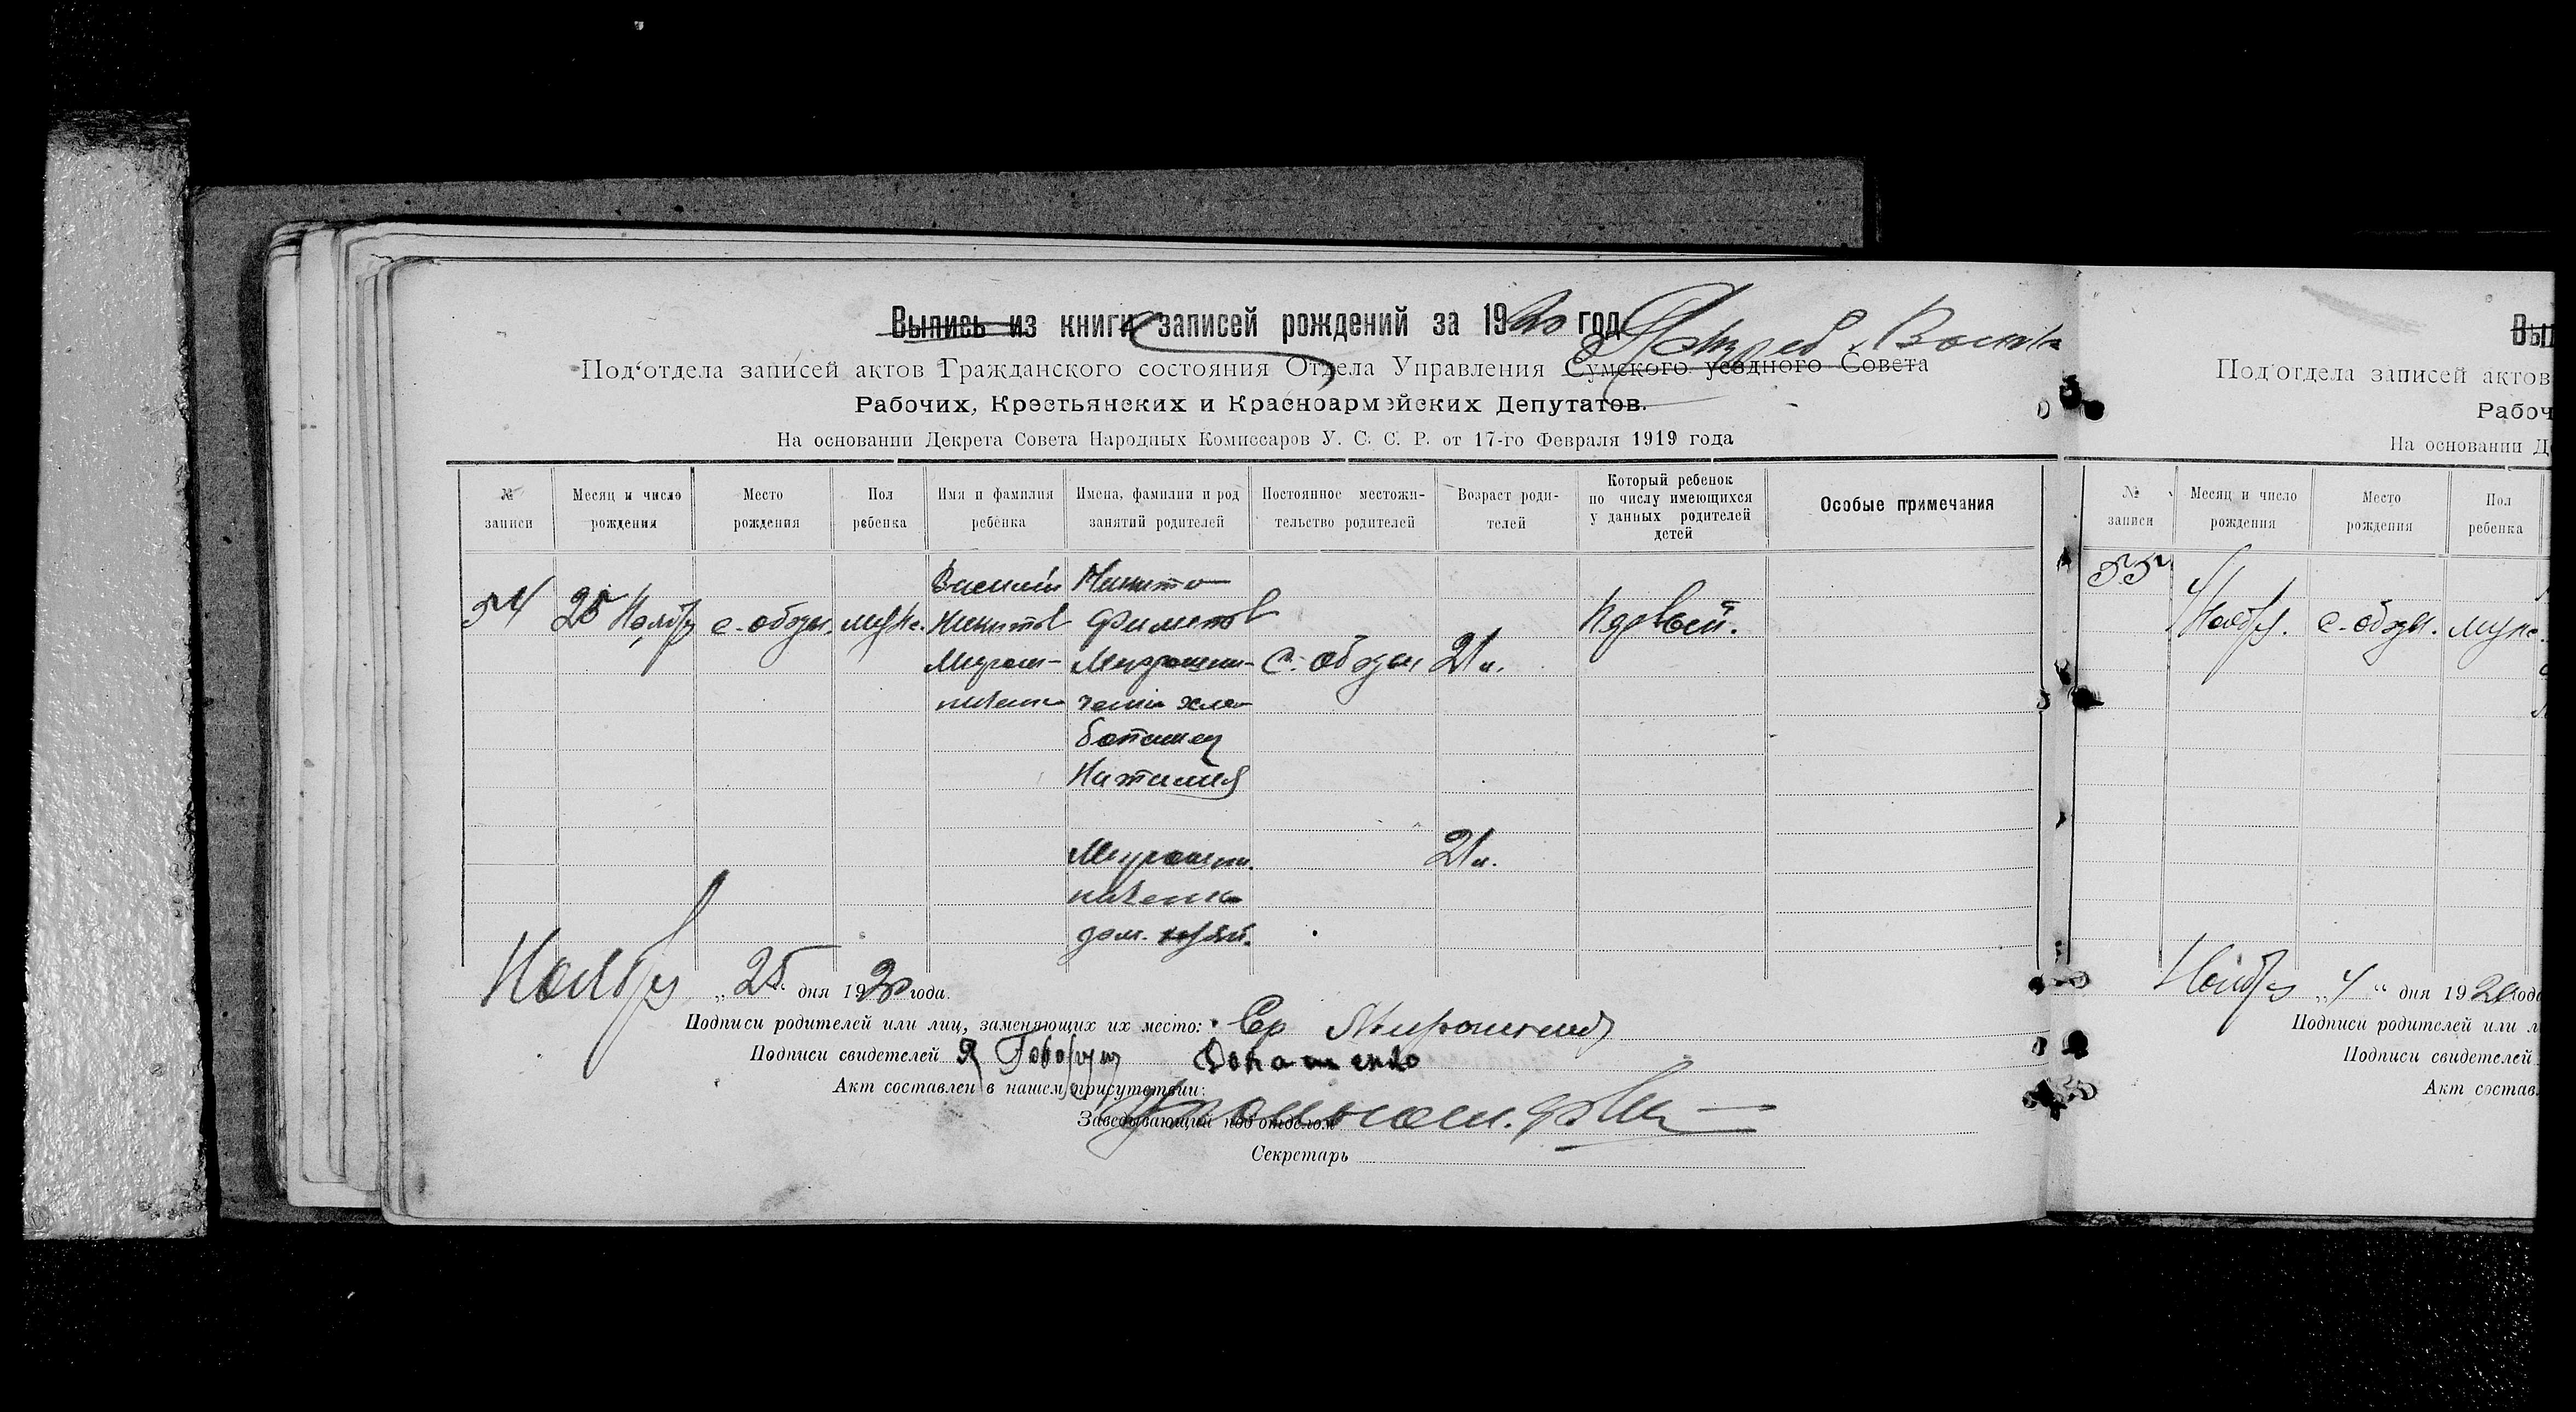 Выпись из книги записей рождений за 1920 год
Под'отдела записей актов Гражданского состояния Отдела Управления Сумского уездного Совета
Рабочих, Крестьянских и Красноармейских Депутатов.
На основании Декрета Совета Народных Комиссаров У. С. С. Р. от 17-го Февраля 1919 года
№ записи
Месяц и число рождения
Место рождения
Пол ребенка
Имя и фамилия ребенка
Имена, фамилии и род занятий родителей
Постоянное местожительство родителей
Возраст родителей
Который ребенок по числу имеющихся у данных родителей детей
Особые примечания
Василий Никита
54 25 Ноября с. муж. Никитов Филипов Первый.
Мирош- Мирошни- с. 21 л.
ниченко ченко хле-
бопашец
Наталия
Мирош 21 л.
ниченко
дом. хозяй.
Ноября „25“ дня 1920 года.
Подписи родителей или лиц, заменяющих их место:
Подписи свидетелей Я
Акт составлен в нашем присутствии:
Заведывающий под'отделом
Секретарь
Вып
Под'отдела записей актов
Рабоч
На основании Д
№ записи
Месяц и число рождения
Место рождения
Пол ребенка
55 4
Ноября. с. муж.
Ноября „4“ дня 1920 года
Подписи родителей или л
Подписи свидетелей
Акт состав